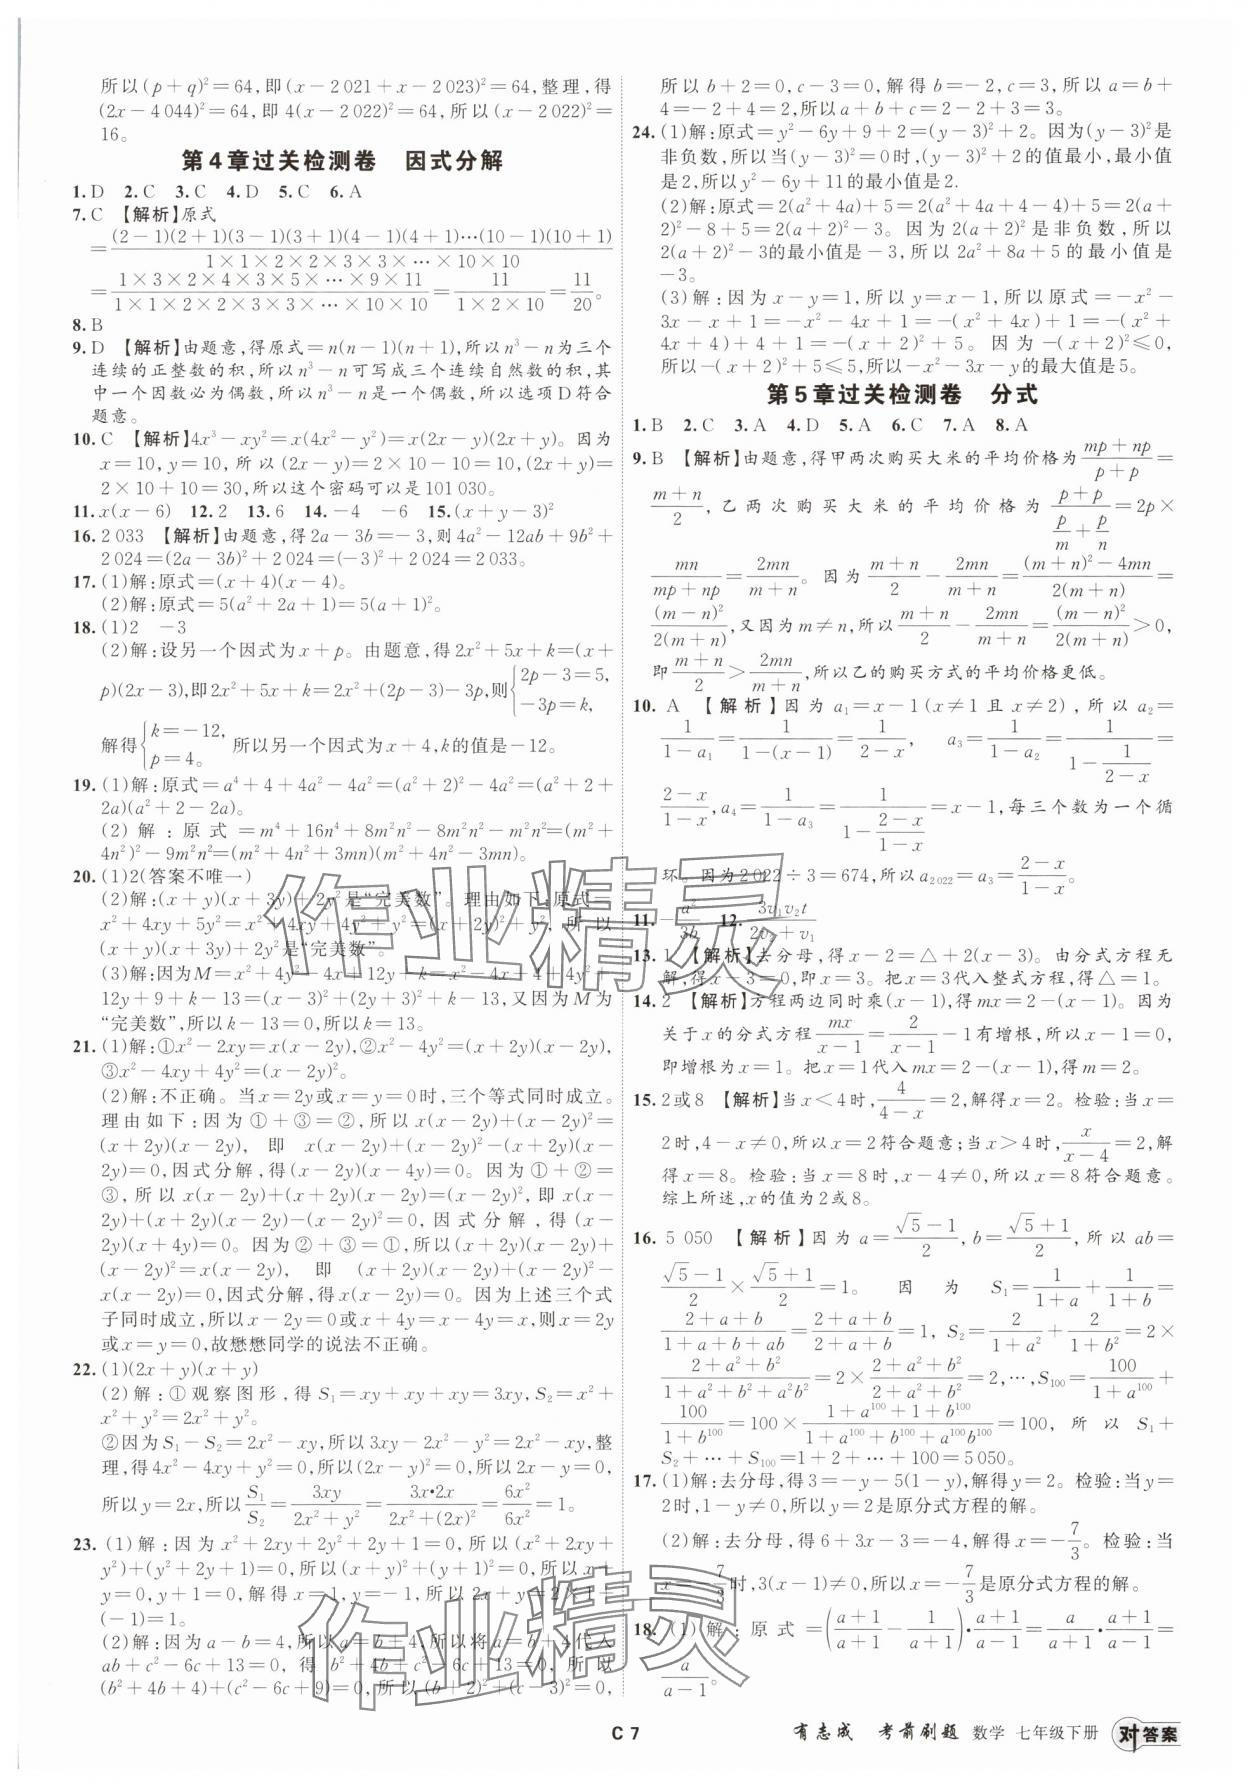 所以(p+q)²=64,即(x-2 021+x-2 023)²=64,整理,得
(2x-4 044)²=64,即 4(x-2 022)²=64,所以(x-2 022)²=
16。
第4章过关检测卷 因式分解
1. D 2. C 3. C 4. D 5. C 6. A
7. C 【解析】原式
=\frac{(2-1)(2+1)(3-1)(3+1)(4-1)(4+1)⋯(10-1)(10+1)}{1×1×2×2×3×3×⋯×10×10}
=\frac{1×3×2×4×3×5×⋯×9×11}{1×1×2×2×3×3×⋯×10×10}=\frac{11}{1×2×10}=\frac{11}{20}。
8. B
9. D 【解析】由题意,得原式=n(n-1)(n+1),所以n³-n为三个
连续的正整数的积,所以n³-n可写成三个连续自然数的积,其
中一个因数必为偶数,所以n³-n是一个偶数,所以选项D符合
题意。
10. C 【解析】4x³-xy²=x(4x²-y²)=x(2x-y)(2x+y)。因为
x=10,y=10,所以(2x-y)=2×10-10=10,(2x+y)=
2×10+10=30,所以这个密码可以是101 030。
11. x(x-6) 12. 2 13. 6 14. -4 -6 15. (x+y-3)²
16. 2 033 【解析】由题意,得2a-3b=-3,则4a²-12ab+9b²+
2 024=(2a-3b)²+2 024=(-3)²+2 024=2 033。
17. (1)解:原式=(x+4)(x-4)。
(2)解:原式=5(a²+2a+1)=5(a+1)²。
18. (1)2 -3
(2)解:设另一个因式为x+p。由题意,得2x²+5x+k=(x+
p)(2x-3),即2x²+5x+k=2x²+(2p-3)-3p,则{2p-3=5, -3p=k,
解得{k=-12, p=4。 所以另一个因式为x+4,k的值是-12。
19. (1)解:原式=a⁴+4+4a²-4a²=(a²+2)²-4a²=(a²+2+
2a)(a²+2-2a)。
(2)解:原式=m⁴+16n⁴+8m²n²-8m²n²-m²n²=(m²+
4n²)²-9m²n²=(m²+4n²+3mn)(m²+4n²-3mn)。
20. (1)2(答案不唯一)
(2)解:(x+y)(x+3y)+2y²是“完美数”。理由如下:原式=
x²+4xy+5y²=x²+4xy+4y²+y²=(x+2y)²+y²,所以
(x+y)(x+3y)+2y²是“完美数”。
(3)解:因为M=x²+4y²-4x+12y+k=x²-4x+4+4y²+
12y+9+k-13=(x-3)²+(2y+3)²+k-13,又因为M为
“完美数”,所以k-13=0,所以k=13。
21. (1)解:①x²-2xy=x(x-2y),②x²-4y²=(x+2y)(x-2y),
③x²-4xy+4y²=(x-2y)²。
(2)解:不正确。当x=2y或x=y=0时,三个等式同时成立。
理由如下:因为①+③=②,所以x(x-2y)+(x-2y)²=
(x+2y)(x-2y), 即 x(x-2y)+(x-2y)²-(x+2y)(x-
2y)=0,因式分解,得(x-2y)(x-4y)=0。因为①+②=
③,所以x(x-2y)+(x+2y)(x-2y)=(x-2y)²,即x(x-
2y)+(x+2y)(x-2y)-(x-2y)²=0,因式分解,得(x-
2y)(x+4y)=0。因为②+③=①,所以(x+2y)(x-2y)+
(x-2y)²=x(x-2y), 即 (x+2y)(x-2y)+(x-2y)²-
x(x-2y)=0,因式分解,得x(x-2y)=0。因为上述三个式
子同时成立,所以x-2y=0或x+4y=x-4y=x,则x=2y
或x=y=0,故懋懋同学的说法不正确。
22. (1)(2x+y)(x+y)
(2)解:①观察图形,得S₁=xy+xy+xy=3xy,S₂=x²+
x²+y²=2x²+y²。
②因为S₁-S₂=2x²-xy,所以3xy-2x²-y²=2x²-xy,整
理,得4x²-4xy+y²=0,所以(2x-y)²=0,所以2x-y=0,
所以y=2x,所以\frac{S₁}{S₂}=\frac{3xy}{2x²+y²}=\frac{3x·2x}{2x²+(2x)²}=\frac{6x²}{6x²}=1。
23. (1)解:因为x²+2xy+2y²+2y+1=0,所以(x²+2xy+
y²)+(y²+2y+1)=0,所以(x+y)²+(y+1)²=0,所以x+
y=0,y+1=0,解得x=1,y=-1,所以2x+y=2×1+
(-1)=1。
(2)解:因为a-b=4,所以a=b+4,所以将a=b+4代入
ab+c²-6c+13=0,得b²+4b+c²-6c+13=0,所以
(b²+4b+4)+(c²-6c+9)=0,所以(b+2)²+(c-3)²=0,
所以b+2=0,c-3=0,解得b=-2,c=3,所以a=b+
4=-2+4=2,所以a+b+c=2-2+3=3。
24. (1)解:原式=y²-6y+9+2=(y-3)²+2。因为(y-3)²是
非负数,所以当(y-3)²=0时,(y-3)²+2的值最小,最小值
是2,所以y²-6y+11的最小值是2.
(2)解:原式=2(a²+4a)+5=2(a²+4a+4-4)+5=2(a+
2)²-8+5=2(a+2)²-3。因为2(a+2)²是非负数,所以
2(a+2)²-3的最小值是-3,所以2a²+8a+5的最小值是
-3。
(3)解:因为x-y=1,所以y=x-1,所以原式=-x²-
3x-x+1=-x²-4x+1=-(x²+4x)+1=-(x²+
4x+4)+4+1=-(x+2)²+5。因为-(x+2)²≤0,
所以-(x+2)²+5≤5,所以-x²-3x-y的最大值是5。
第5章过关检测卷 分式
1. B 2. C 3. A 4. D 5. A 6. C 7. A 8. A
9. B 【解析】由题意,得甲两次购买大米的平均价格为\frac{mp+np}{p+p}=
\frac{m+n}{2},乙两次购买大米的平均价格为\frac{p+p}{\frac{p}{m}+\frac{p}{n}}=2p×
\frac{mn}{mp+np}=\frac{2mn}{m+n}。因为\frac{m+n}{2}-\frac{2mn}{m+n}=\frac{(m+n)²-4mn}{2(m+n)}=
\frac{(m-n)²}{2(m+n)},又因为m≠n,所以\frac{m+n}{2}-\frac{2mn}{m+n}=\frac{(m-n)²}{2(m+n)}>0,
即\frac{m+n}{2}>\frac{2mn}{m+n},所以乙的购买方式的平均价格更低。
10. A 【解析】因为a₁=x-1(x≠1且x≠2),所以a₂=
\frac{1}{1-a₁}=\frac{1}{1-(x-1)}=\frac{1}{2-x}, a₃=\frac{1}{1-a₂}=\frac{1}{1-\frac{1}{2-x}}=
\frac{2-x}{1-x},a₄=\frac{1}{1-a₃}=\frac{1}{1-\frac{2-x}{1-x}}=x-1,每三个数为一个循
环。因为2 022÷3=674,所以a₂₀₂₂=a₃=\frac{2-x}{1-x}。
11. -\frac{a²}{3b} 12. \frac{3v₁v₂t}{2v₂+v₁}
13. 1 【解析】去分母,得x-2=△+2(x-3)。由分式方程无
解,得x-3=0,即x=3。把x=3代入整式方程,得△=1。
14. 2 【解析】方程两边同时乘(x-1),得mx=2-(x-1)。因为
关于x的分式方程\frac{mx}{x-1}=\frac{2}{x-1}-1有增根,所以x-1=0,
即增根为x=1。把x=1代入mx=2-(x-1),得m=2。
15. 2或8 【解析】当x<4时,\frac{4}{4-x}=2,解得x=2。检验:当x=
2时,4-x≠0,所以x=2符合题意;当x>4时,\frac{x}{x-4}=2,解
得x=8。检验:当x=8时,x-4≠0,所以x=8符合题意。
综上所述,x的值为2或8。
16. 5 050 【解析】因为a=\frac{√5-1}{2},b=\frac{√5+1}{2},所以ab=
\frac{√5-1}{2}×\frac{√5+1}{2}=1。 因为 S₁=\frac{1}{1+a}+\frac{1}{1+b}=
\frac{2+a+b}{1+a+b+ab}=\frac{2+a+b}{2+a+b}=1, S₂=\frac{2}{1+a²}+\frac{2}{1+b²}=2×
\frac{2+a²+b²}{1+a²+b²+a²b²}=2×\frac{2+a²+b²}{2+a²+b²}=2,⋯,S₁₀₀=\frac{100}{1+a¹⁰⁰}+
\frac{100}{1+b¹⁰⁰}=100×\frac{1+a¹⁰⁰+1+b¹⁰⁰}{1+a¹⁰⁰+b¹⁰⁰+a¹⁰⁰b¹⁰⁰}=100,所以S₁+
S₂+⋯+S₁₀₀=1+2+⋯+100=5 050。
17. (1)解:去分母,得3=-y-5(1-y),解得y=2。检验:当y=
2时,1-y≠0,所以y=2是原分式方程的解。
(2)解:去分母,得6+3x-3=-4,解得x=-\frac{7}{3}。检验:当
x=-\frac{7}{3}时,3(x-1)≠0,所以x=-\frac{7}{3}是原分式方程的解。
18. (1)解:原式=(\frac{a+1}{a+1}-\frac{1}{a+1})·\frac{a+1}{a-1}=\frac{a}{a+1}·\frac{a+1}{a-1}=
\frac{a}{a-1}。
作业精灵
作业精灵
C 7
有志成 考前刷题 数学 七年级下册 对答案